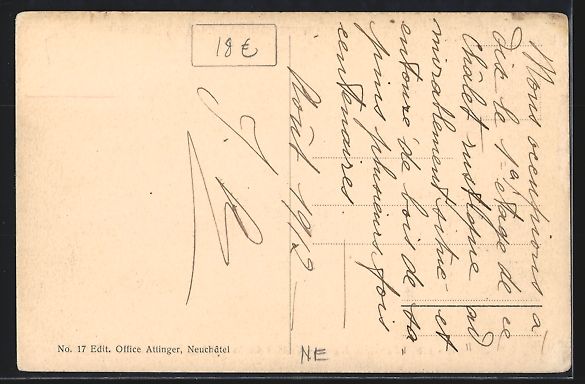 Nous occupions à
dix le 1er étage de ce
Châlet rustique ad
mirablement situé et
entouré de bois de sa=
pins plusieurs fois
centenaires
Août 1912
J. R
18 €
No. 17 Edit. Office Attinger, Neuchâtel
NE